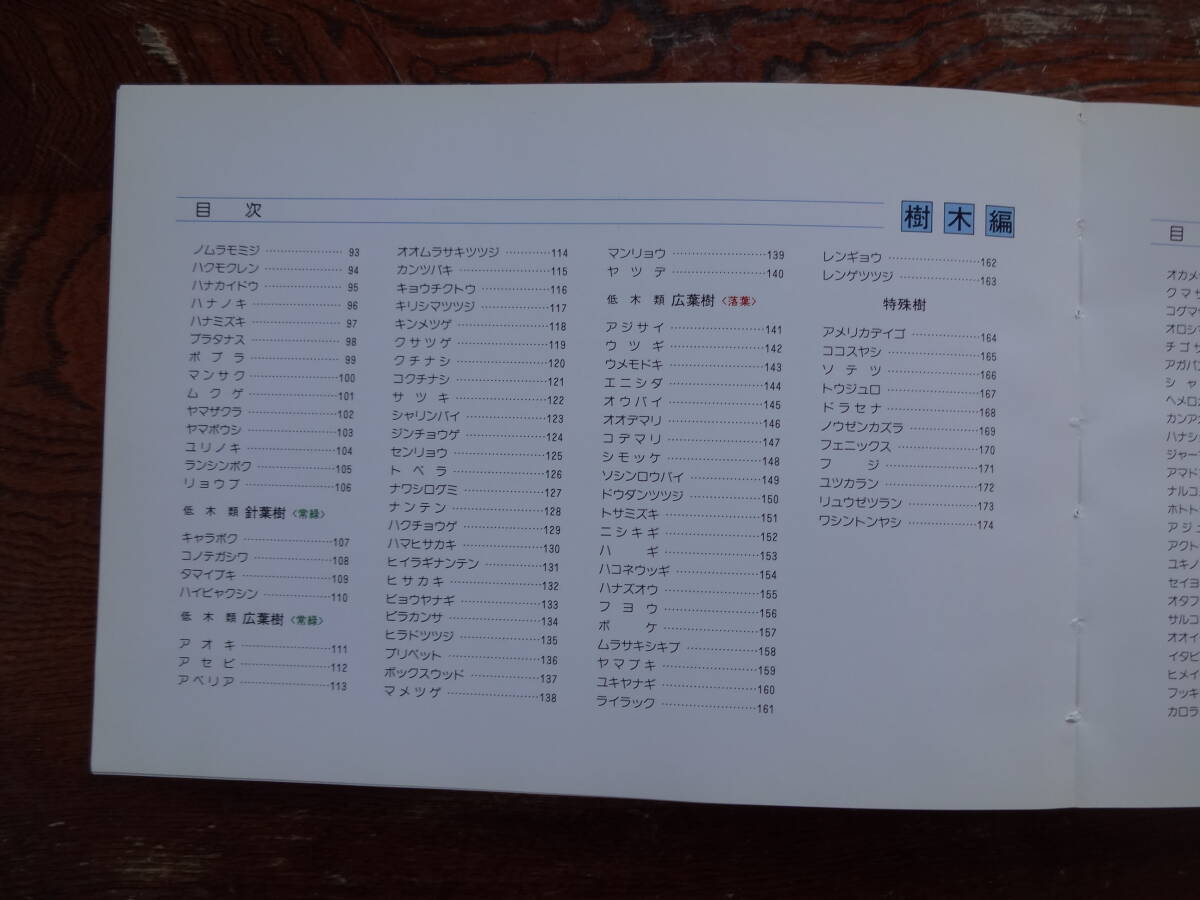 目 次
樹木編
ノムラモミジ……………93
ハクモクレン……………94
ハナカイドウ……………95
ハナノキ……………96
ハナミズキ……………97
プラタナス……………98
ポプラ……………99
マンサク……………100
ムクゲ……………101
ヤマザクラ……………102
ヤマボウシ……………103
ユリノキ……………104
ランシンボク……………105
リョウブ……………106
低木類 針葉樹〈常緑〉
キャラボク……………107
コノテガシワ……………108
タマイブキ……………109
ハイビャクシン……………110
低木類 広葉樹〈常緑〉
アオキ……………111
アセビ……………112
アベリア……………113
オオムラサキツツジ……………114
カンツバキ……………115
キョウチクトウ……………116
キリシマツツジ……………117
キンメツゲ……………118
クサツゲ……………119
クチナシ……………120
コクチナシ……………121
サツキ……………122
シャリンバイ……………123
ジンチョウゲ……………124
センリョウ……………125
トベラ……………126
ナワシログミ……………127
ナンテン……………128
ハクチョウゲ……………129
ハマヒサカキ……………130
ヒイラギナンテン……………131
ヒサカキ……………132
ビョウヤナギ……………133
ピラカンサ……………134
ヒラドツツジ……………135
プリペット……………136
ボックスウッド……………137
マメツゲ……………138
マンリョウ……………139
ヤツデ……………140
低木類 広葉樹〈落葉〉
アジサイ……………141
ウツギ……………142
ウメモドキ……………143
エニシダ……………144
オウバイ……………145
オオデマリ……………146
コデマリ……………147
シモツケ……………148
ソシンロウバイ……………149
ドウダンツツジ……………150
トサミズキ……………151
ニシキギ……………152
ハギ……………153
ハコネウツギ……………154
ハナズオウ……………155
フヨウ……………156
ボケ……………157
ムラサキシキブ……………158
ヤマブキ……………159
ユキヤナギ……………160
ライラック……………161
レンギョウ……………162
レンゲツツジ……………163
特殊樹
アメリカデイゴ……………164
ココスヤシ……………165
ソテツ……………166
トウジュロ……………167
ドラセナ……………168
ノウゼンカズラ……………169
フェニックス……………170
フジ……………171
ユツカラン……………172
リュウゼツラン……………173
ワシントンヤシ……………174
目
オカメ
クマサ
コグマ
オロシ
チゴサ
アガパ
シャ
ヘメロカ
カンア
ハナシ
ジャー
アマド
ナルコ
ホトト
アジュ
アクト
ユキノ
セイヨ
オタフ
サルコ
オオイ
イタビ
ヒメイ
フッキ
カロラ